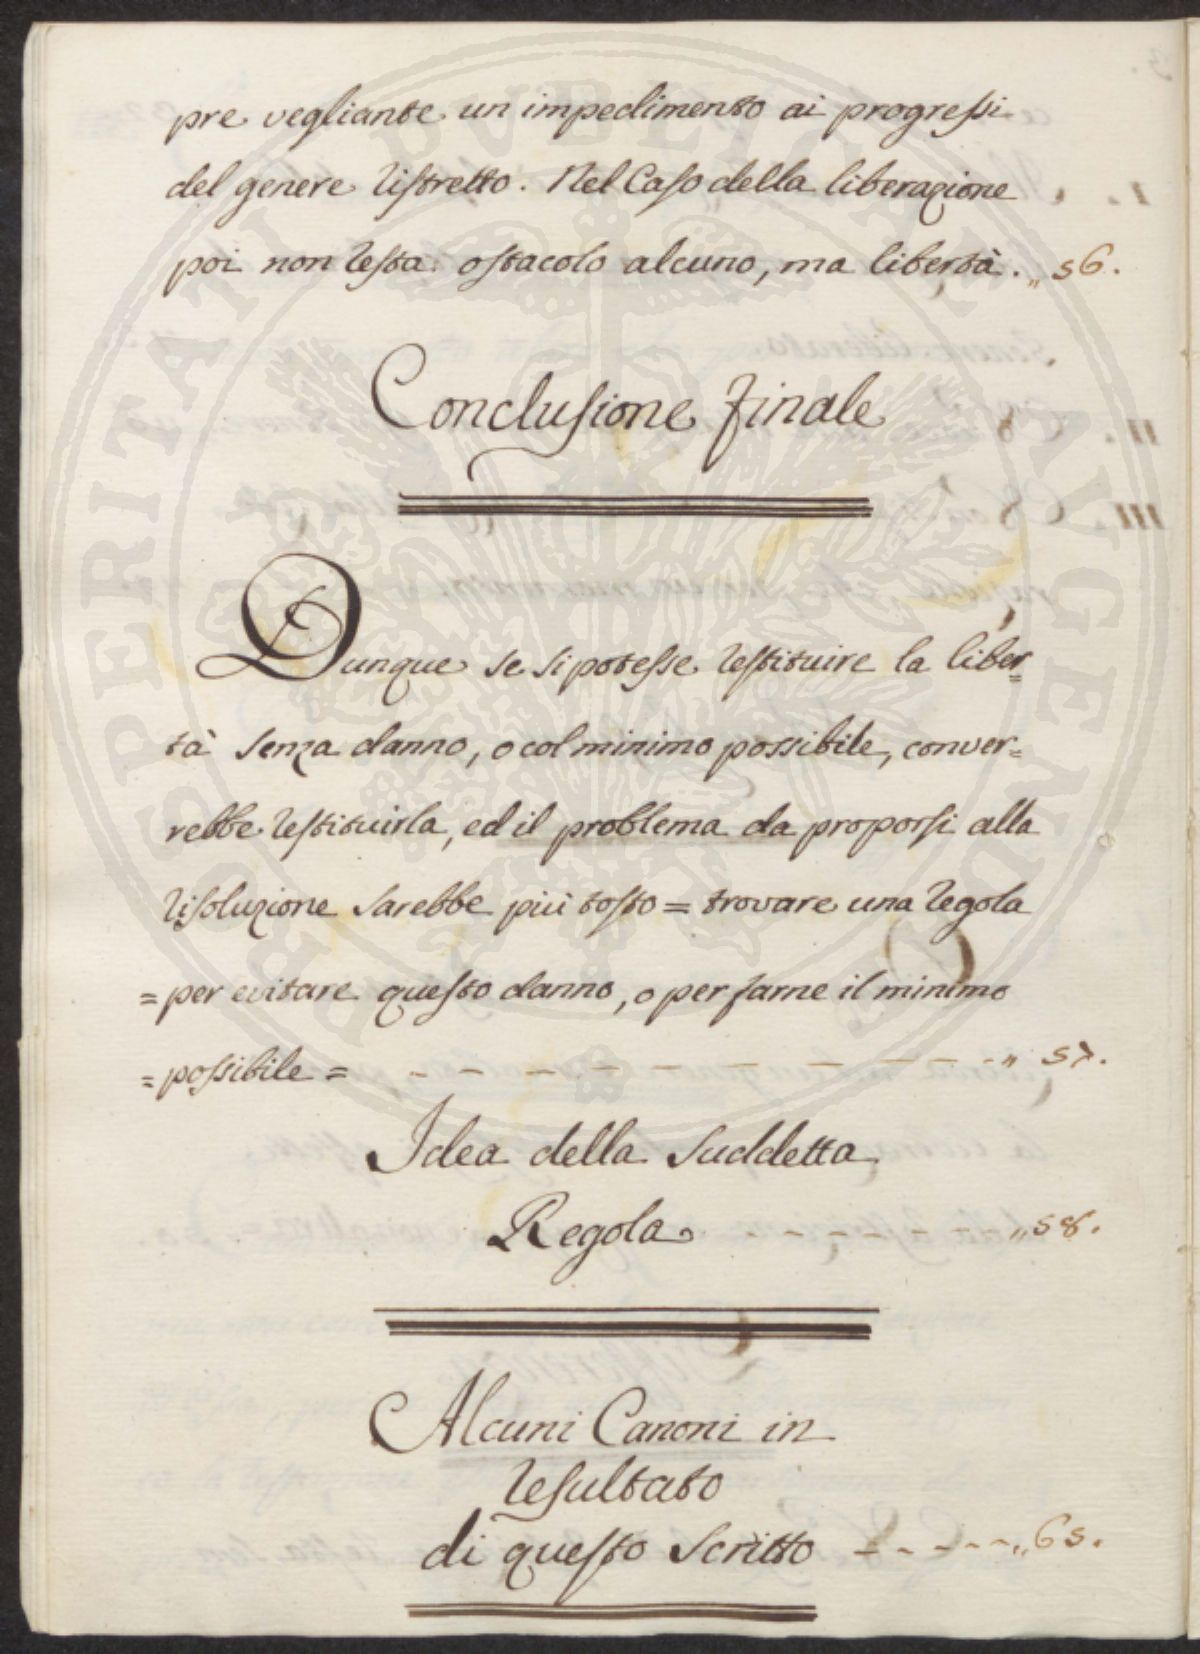 pre vegliante un impedimento ai progressi
del genere ristretto. Nel Caso della liberazione
poi non resta ostacolo alcuno, ma libertà. „ 56.
Conclusione finale
Dunque se si potesse restituire la liber=
tà senza danno, o col minimo possibile, conver=
rebbe restituirla, ed il problema da proporsi alla
risoluzione sarebbe più tosto = trovare una regola
= per evitare questo danno, o per farne il minimo
= possibile = - - - - - - - - - - - „ 57.
Idea della suddetta
Regola - - - - - - - „ 58.
Alcuni Canoni in
resultato
di questo scritto - - - - - „ 65.
PROSPERITATI PVBLICAE AVGENDAE